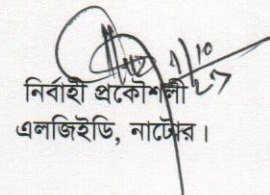 নির্বাহী প্রকৌশলী
এলজিইডি, নাটোর।